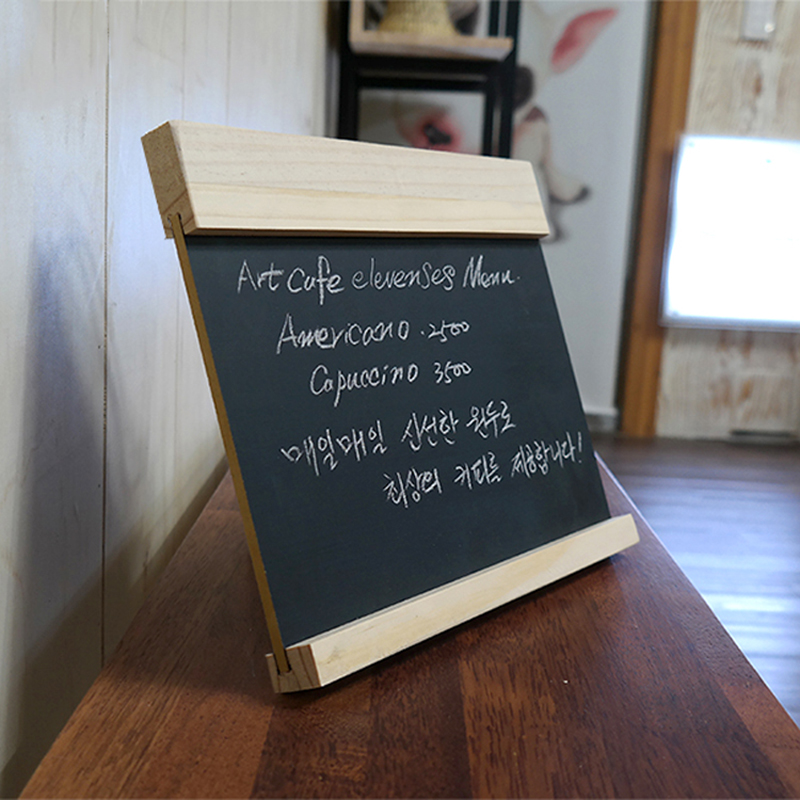 Art Cafe elevenses Menu.
Americano . 2500
Capuccino 3500
매일매일 신선한 원두로
최상의 커피를 제공합니다!